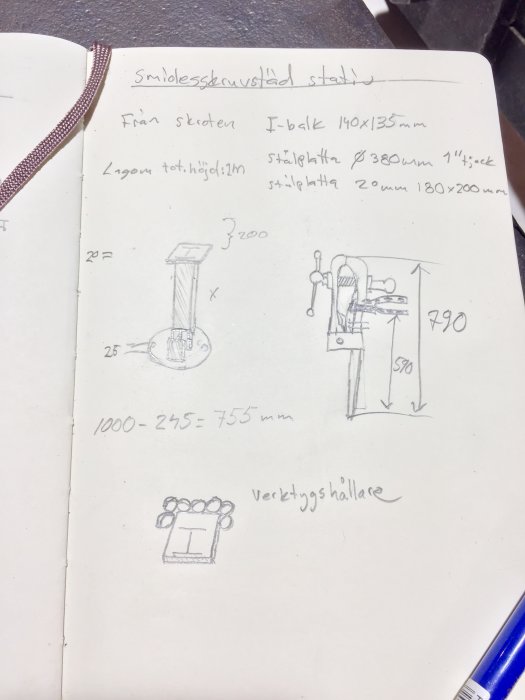 Smidesskruvstäd stativ
Från skroten I-balk 140x135mm
Lagom tot.höjd:1M stålplatta Ø 380mm 1" tjock
stålplatta 20mm 180x200mm
}200
20=
x
25
790
590
1000-245=755mm
verktygshållare
I